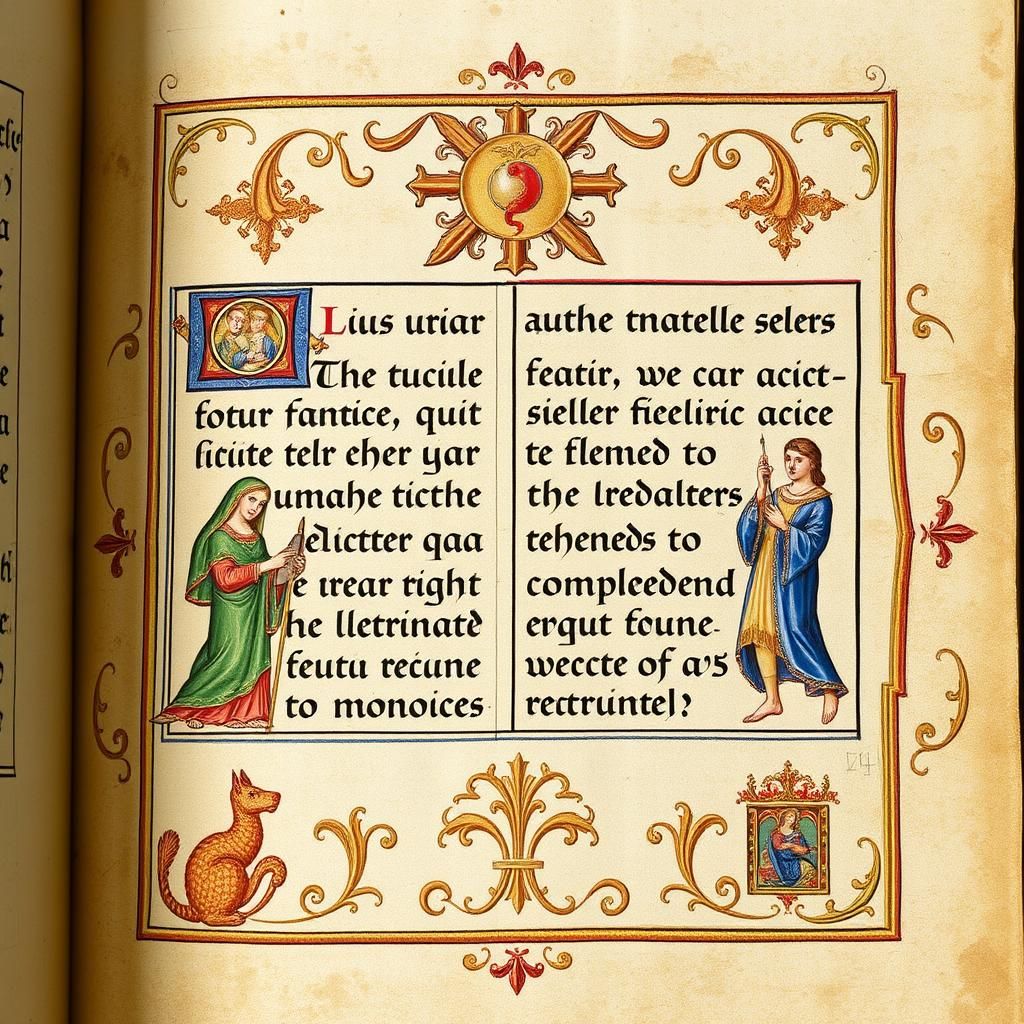 Lius uriar
The tucile
fotur fantice, quit
ficiite telr eher yar
umahe ticthe
elictter qaa
e irear right
he lletrinatd
feutu recune
to monoices
authe tnatelle selers
featir, we car acict-
sieller fieeliric acice
te flemed to
the lredalters
teheneds to
compleedend
erqut foune.
weccte of a's
rectruntel?